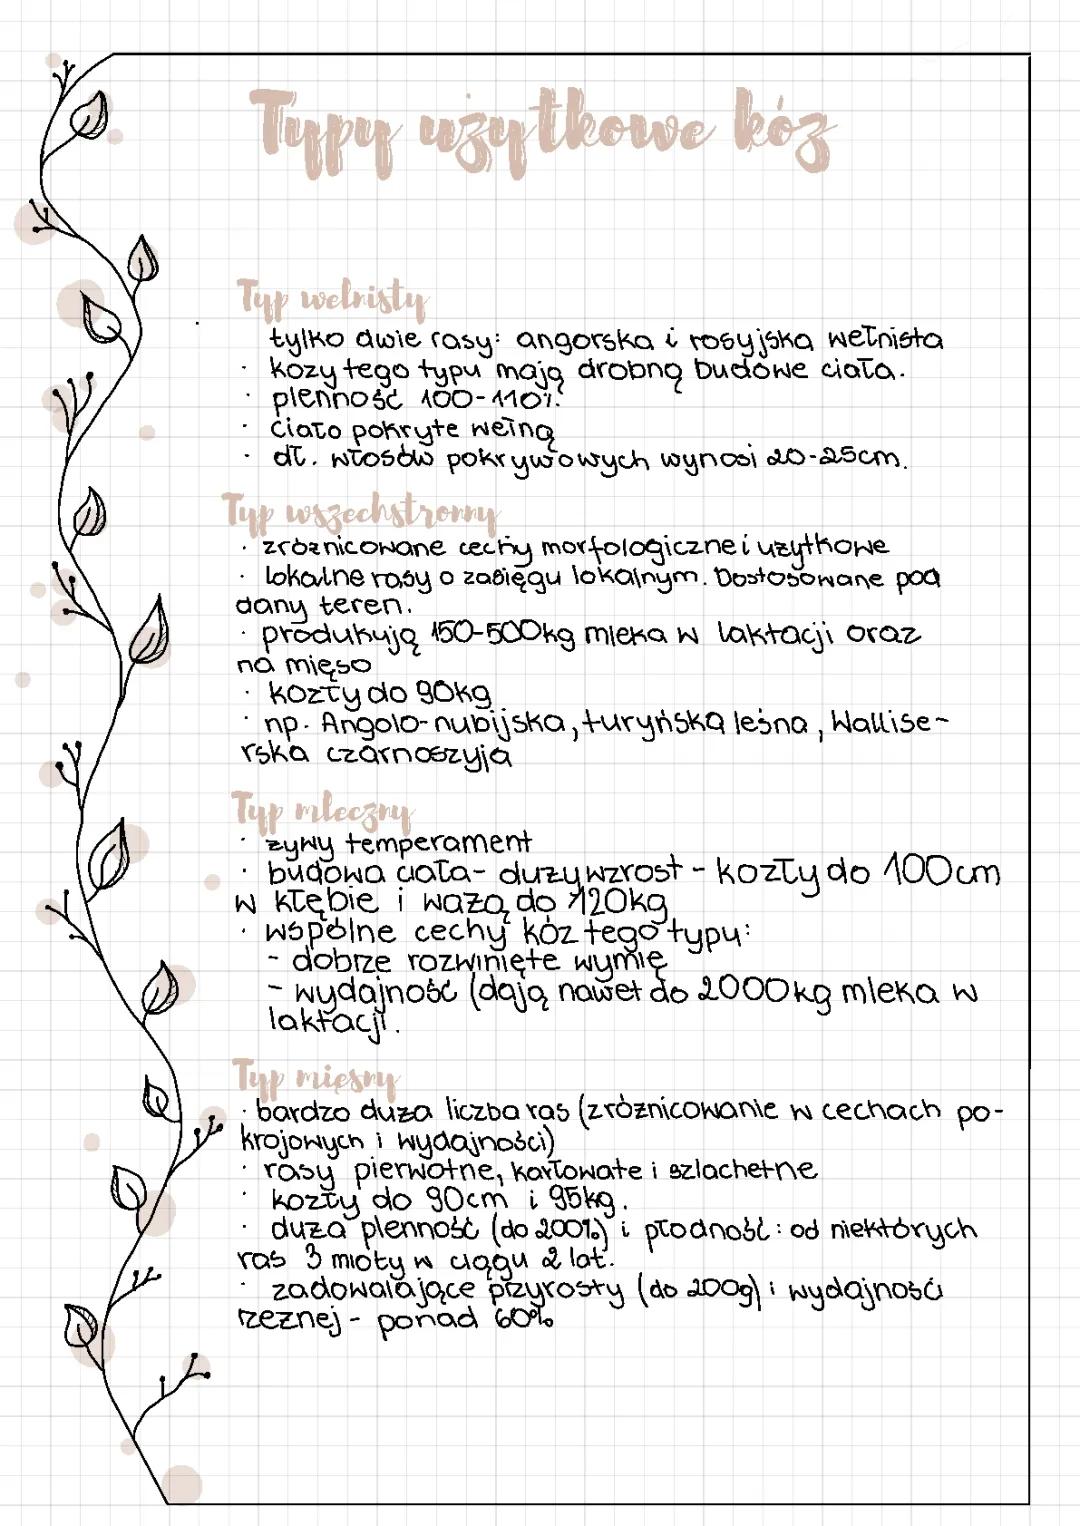 Typy użytkowe kóz
Typ wełnisty
tylko dwie rasy: angorska i rosyjska wełnista
· kozy tego typu mają drobną budowe ciała.
· plenność 100-110%.
· ciało pokryte wełną
· dł. włosów pokrywowych wynosi 20-25cm.
Typ wszechstronny
· zróżnicowane cechy morfologiczne i użytkowe
· lokalne rasy o zasięgu lokalnym. Dostosowane pod
dany teren.
· produkują 150-500kg mleka w laktacji oraz
na mięso
· kozły do 90kg
· np. Angolo-nubijska, turyńska leśna, Wallise-
rska czarnoszyja
Typ mleczny
· żywy temperament
· budowa ciała - duży wzrost - kozły do 100cm
w kłębie i ważą do 120kg
· wspólne cechy kóz tego typu:
- dobrze rozwinięte wymię
- wydajność (dają nawet do 2000kg mleka w
laktacji.
Typ mięsny
· bardzo duża liczba ras (zróżnicowanie w cechach po-
krojowych i wydajności)
· rasy pierwotne, karłowate i szlachetne
· kozły do 90cm i 95kg.
· duża plenność (do 200%) i płodność: od niektórych
ras 3 mioty w ciągu 2 lat.
· zadowalające przyrosty (do 200g) i wydajność
rzeźnej - ponad 60%